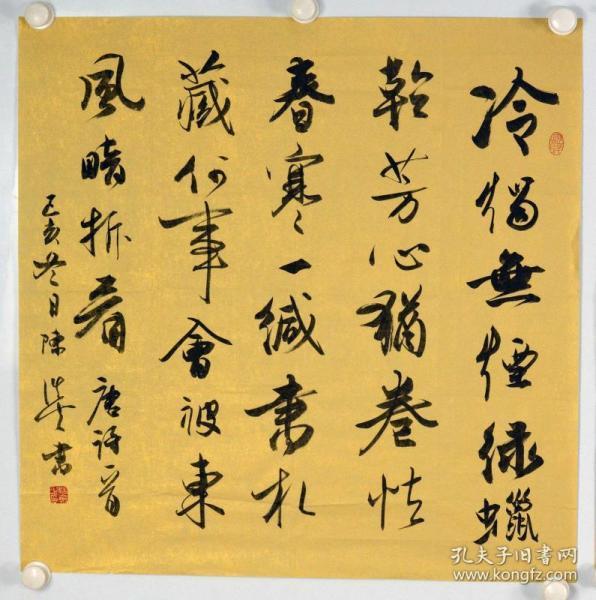 冷燭無煙綠蠟
乾芳心猶卷怯
春寒一緘書札
藏何事會被東
風暗拆看 唐詩一首
己亥冬日陳書
孔夫子旧书网
www.kongfz.com